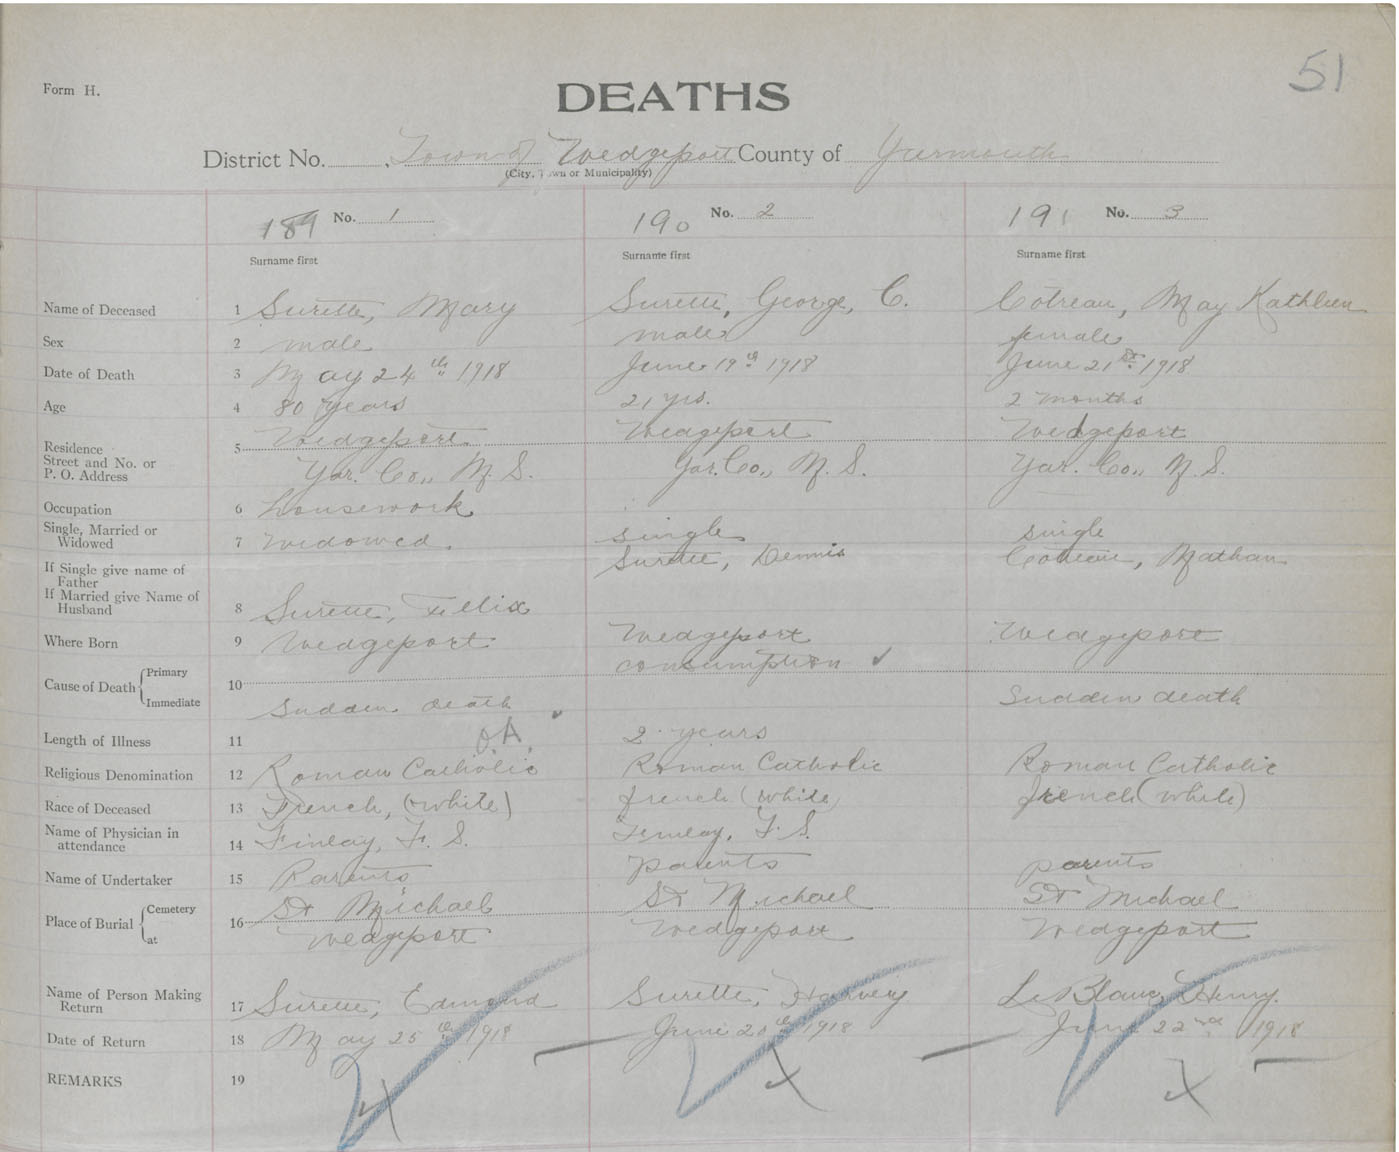 51
Form H.
DEATHS
District No. Town of Wedgeport County of Yarmouth
(City, Town or Municipality)
189 No. 1 190 No. 2 191 No. 3
Surname first Surname first Surname first
Name of Deceased 1 Surette, Mary Surette, George, C. Cotreau, May Kathleen
Sex 2 male male female
Date of Death 3 May 24th 1918 June 19th 1918 June 21st 1918
Age 4 80 years 21 yrs. 2 months
Residence 5 Wedgeport Wedgeport Wedgeport
Street and No. or
P. O. Address Yar. Co., N. S. Yar. Co., N. S. Yar. Co., N. S.
Occupation 6 housework
Single, Married or
Widowed 7 Widowed. single single
If Single give name of
Father Surette, Dennis Cotreau, Nathan
If Married give Name of
Husband 8 Surette, Fellix
Where Born 9 Wedgeport Wedgeport Wedgeport
Cause of Death Primary 10 consumption ✓
Immediate Sudden death ✓ Sudden death
O.A.
Length of Illness 11 2 years
Religious Denomination 12 Roman Catholic Roman Catholic Roman Catholic
Race of Deceased 13 French, (white) french (white) french (white)
Name of Physician in
attendance 14 Finlay, F. S. Finlay, F. S.
Name of Undertaker 15 Parents parents parents
Place of Burial Cemetery 16 St Michael St Michael St Michael
at Wedgeport Wedgeport Wedgeport
Name of Person Making
Return 17 Surette, Edmond Surette, Harvey LeBlanc, Henry.
Date of Return 18 May 25th 1918 June 20th 1918 June 22nd 1918
REMARKS 19